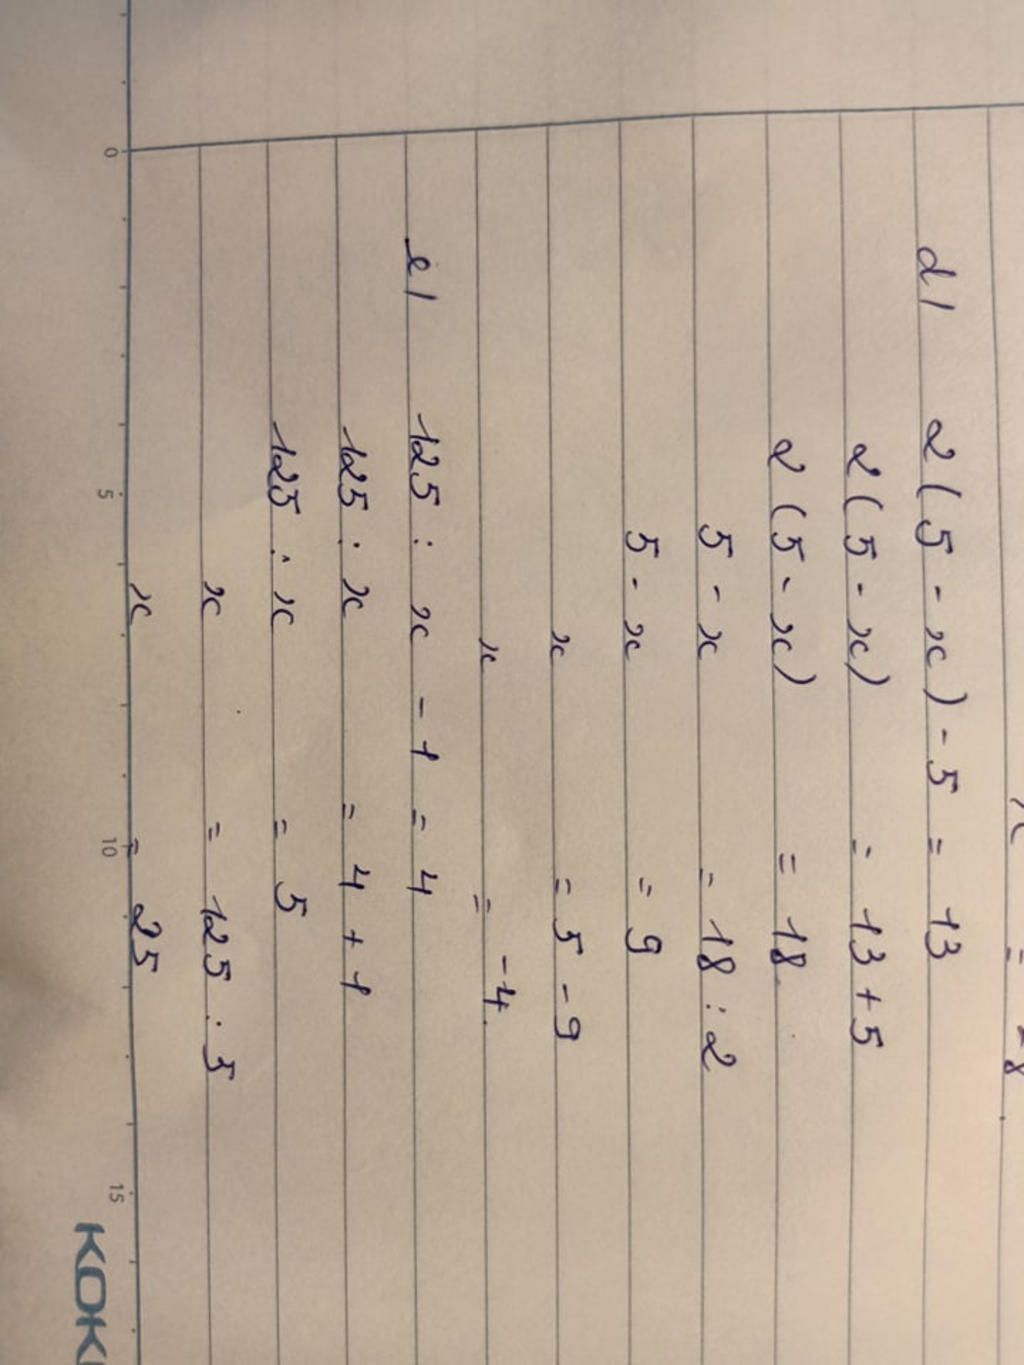 d/ 2(5 - x) - 5 = 13
2(5 - x) = 13 + 5
2(5 - x) = 18
5 - x = 18 : 2
5 - x = 9
x = 5 - 9
x = -4
e/ 125 : x - 1 = 4
125 : x = 4 + 1
125 : x = 5
x = 125 : 5
x = 25
0 5 10 15